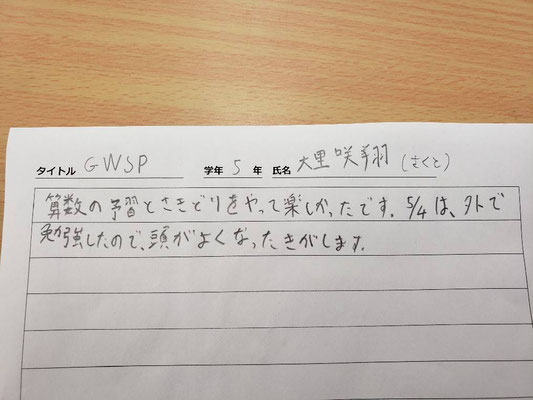 タイトル GWSP 学年 5 年 氏名 大里咲翔(さくと)
算数の予習とさきどりをやって楽しかったです。5/4は、外で
勉強したので、頭がよくなったきがします。